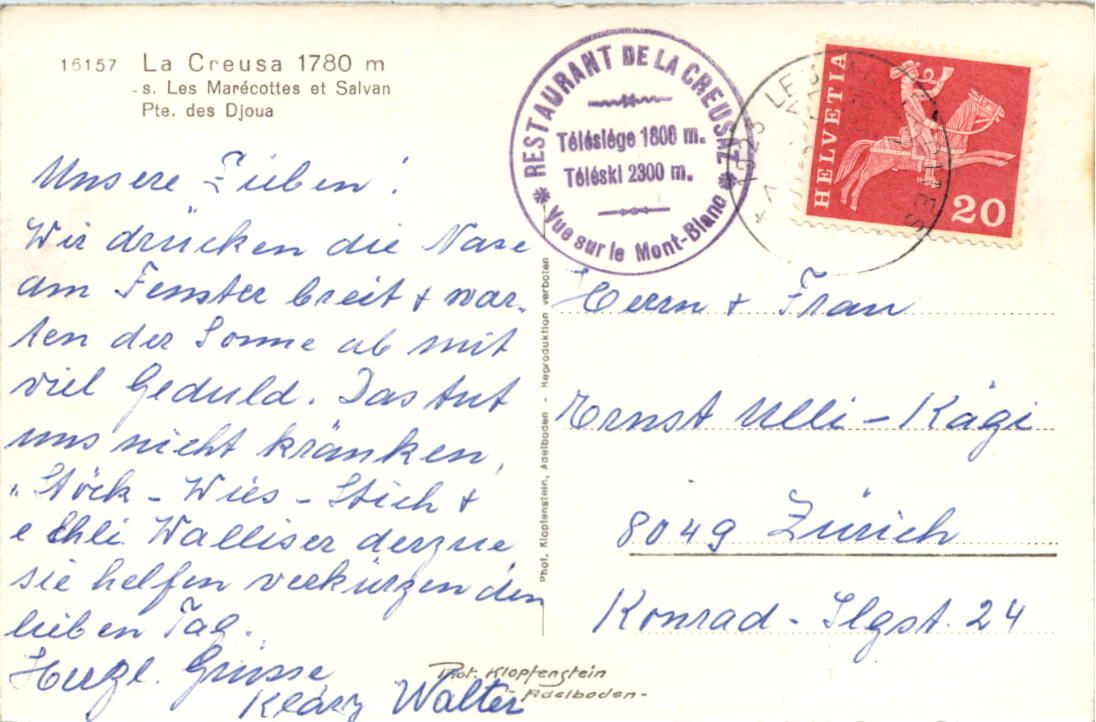 16157 La Creusa 1780 m
s. Les Marécottes et Salvan
Pte. des Djoua
RESTAURANT DE LA CREUSAZ
Télésiège 1800 m.
Téléski 2300 m.
Vue sur le Mont-Blanc
1923 LES MARÉCOTTES
HELVETIA
20
Unsere Lieben!
Wir drücken die Nase
am Fenster breit + war-
ten der Sonne ab mit
viel Geduld. Das tut
uns nicht kränken,
"Stöck - Wies - Stich +
e Chli Walliser derzue
sie helfen verkürzen den
lieben Tag.
Herzl. Grüsse
Kläry Walter
Phot. Klopfenstein, Adelboden - Reproduktion verboten
Herrn + Frau
Ernst Ulli-Kägi
8049 Zürich
Konrad-Ilgst. 24
Phot. Klopfenstein
- Adelboden -